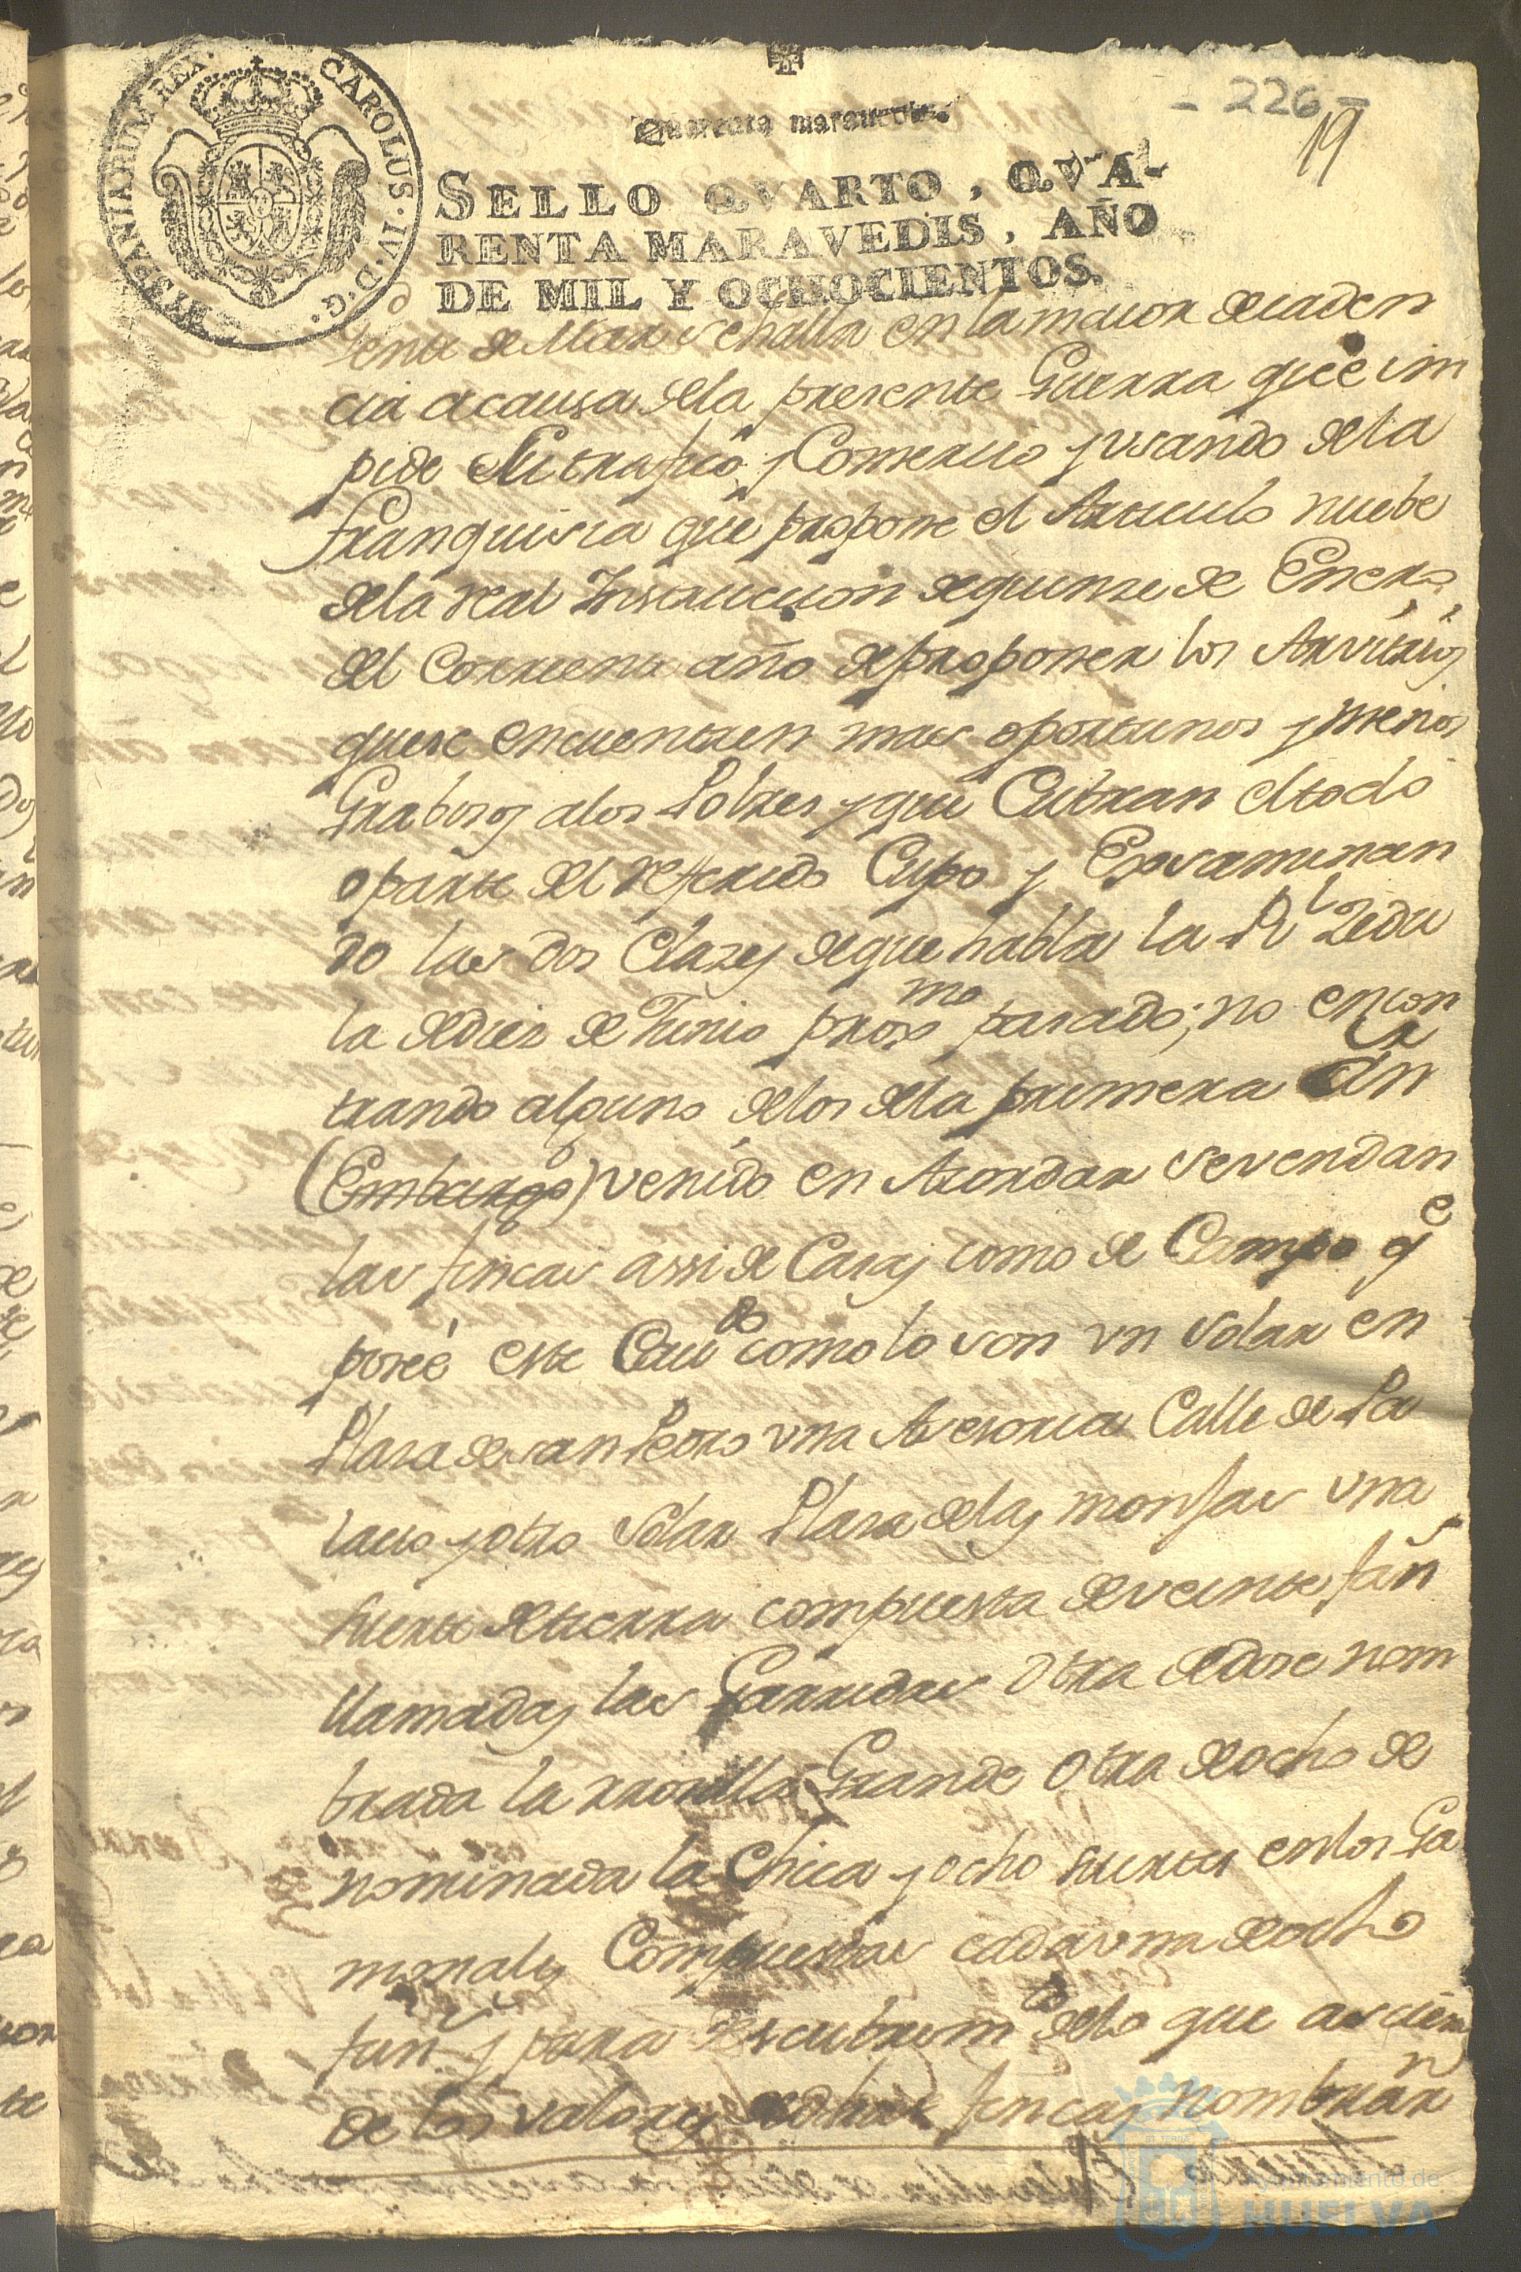 - 226 -
19
HISPANIARUM REX. CAROLUS. IV. D. G.
Quarenta maravedis.
SELLO QVARTO, QVA-
RENTA MARAVEDIS, AÑO
DE MIL Y OCHOCIENTOS.
gente de Mar se halla en la maior decaden
cia acausa dela presente Guerra que im
pide su trafico y Comercio y usando dela
franquisia que propone el Articulo nuebe
dela real Instruccion de quinse de Enero
del Corriente año de proponer los Arvitrios
que se encuentren mas oportunos y menos
Grabosos alos Pobres y que Cubran el todo
oparte del referido Cupo y Exsaminan
do las dos Clases de que habla la Rl Zedu
la de dies de Junio proxmo pasado; no encon
trando alguno delos dela primera an
(Embargo) venido en Acordar se vendan
las fincas assi de Casas como de Campo qe
poseé este Cavdo como lo son vn solar en
Plasa de san Pedro vna Asesoria Calle de Pa
lacio y otro Solar Plasa delas monjas vna
suerte de tierra compuesta de veinte fans
llamadas las Garridas otra de dose nom
brada la Grande otra de ocho de
nominada la Chica y ocho suertes enlos Ga
monales Compuestas cada vna de ocho
fans y para descubrimto delo que ascien
de los valores de dhas fincas nombrarn
Ayuntamiento de
HUELVA